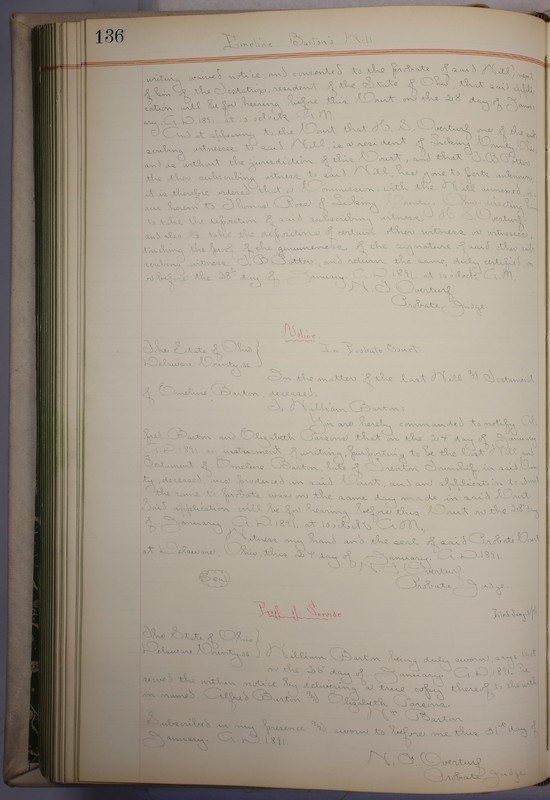 136
Emeline Barton's Will
writing waived notice and consented to the probate of said Will
of kin of the Testatrix resident of the State of Ohio that said appli
cation will be for hearing before this Court on the 28 day of Janu
ary A.D. 1891. at 10 o'clock A.M.
And it appearing to the Court that H. S. Overturf one of the sub
scribing witnesses to said Will, is a resident of Licking County Ohio
and is without the jurisdiction of this Court, and that
the other subscribing witness to said Will has gone to parts unknown
it is therefore ordered that a Commission with the Will annexed,
sue herein to Thomas of Licking County, Ohio directing him
to take the deposition of said subscribing witness
and also to take the depositions of certain other witness or witnesses
touching the proof of the genuineness of the signature of said other sub
scribing witness and return the same, duly certified
or before the 28" day of January A.D. 1891. at 10 o'clock A.M.
N. F. Overturf
Probate Judge
Notice
The State of Ohio }
Delaware County ss } In Probate Court
In the matter of the last Will & Testament
of Emeline Barton deceased.
To William Barton:
You are hereby commanded to notify Al
fred Barton and Elizabeth Parsons that on the 24" day of January
A.D. 1891. an instrument of writing, purporting to be the last Will and
Testament of Emeline Barton late of Trenton Township, in said Coun
ty, deceased, was produced in said Court, and an application to admit
the same to probate was on the same day made in said Court.
Said application will be for hearing before this Court on the 28 day
of January A.D. 1891. at 10 o'clock A.M.
Witness my hand and the seal of said Probate Court
at Delaware, Ohio this 24 day of January A.D. 1891.
N. F. Overturf
Seal
Probate Judge.
Proof of Service
The State of Ohio }
Delaware County ss } William Barton being duly sworn, says that
on the 26" day of January A.D. 1891. he
served the within notice by delivering a true copy thereof to the with
in named Alfred Barton & Elizabeth Parsons.
Wm Barton
Subscribed in my presence & sworn to before me this 31st day of
January. A.D. 1891.
N. F. Overturf
Probate Judge